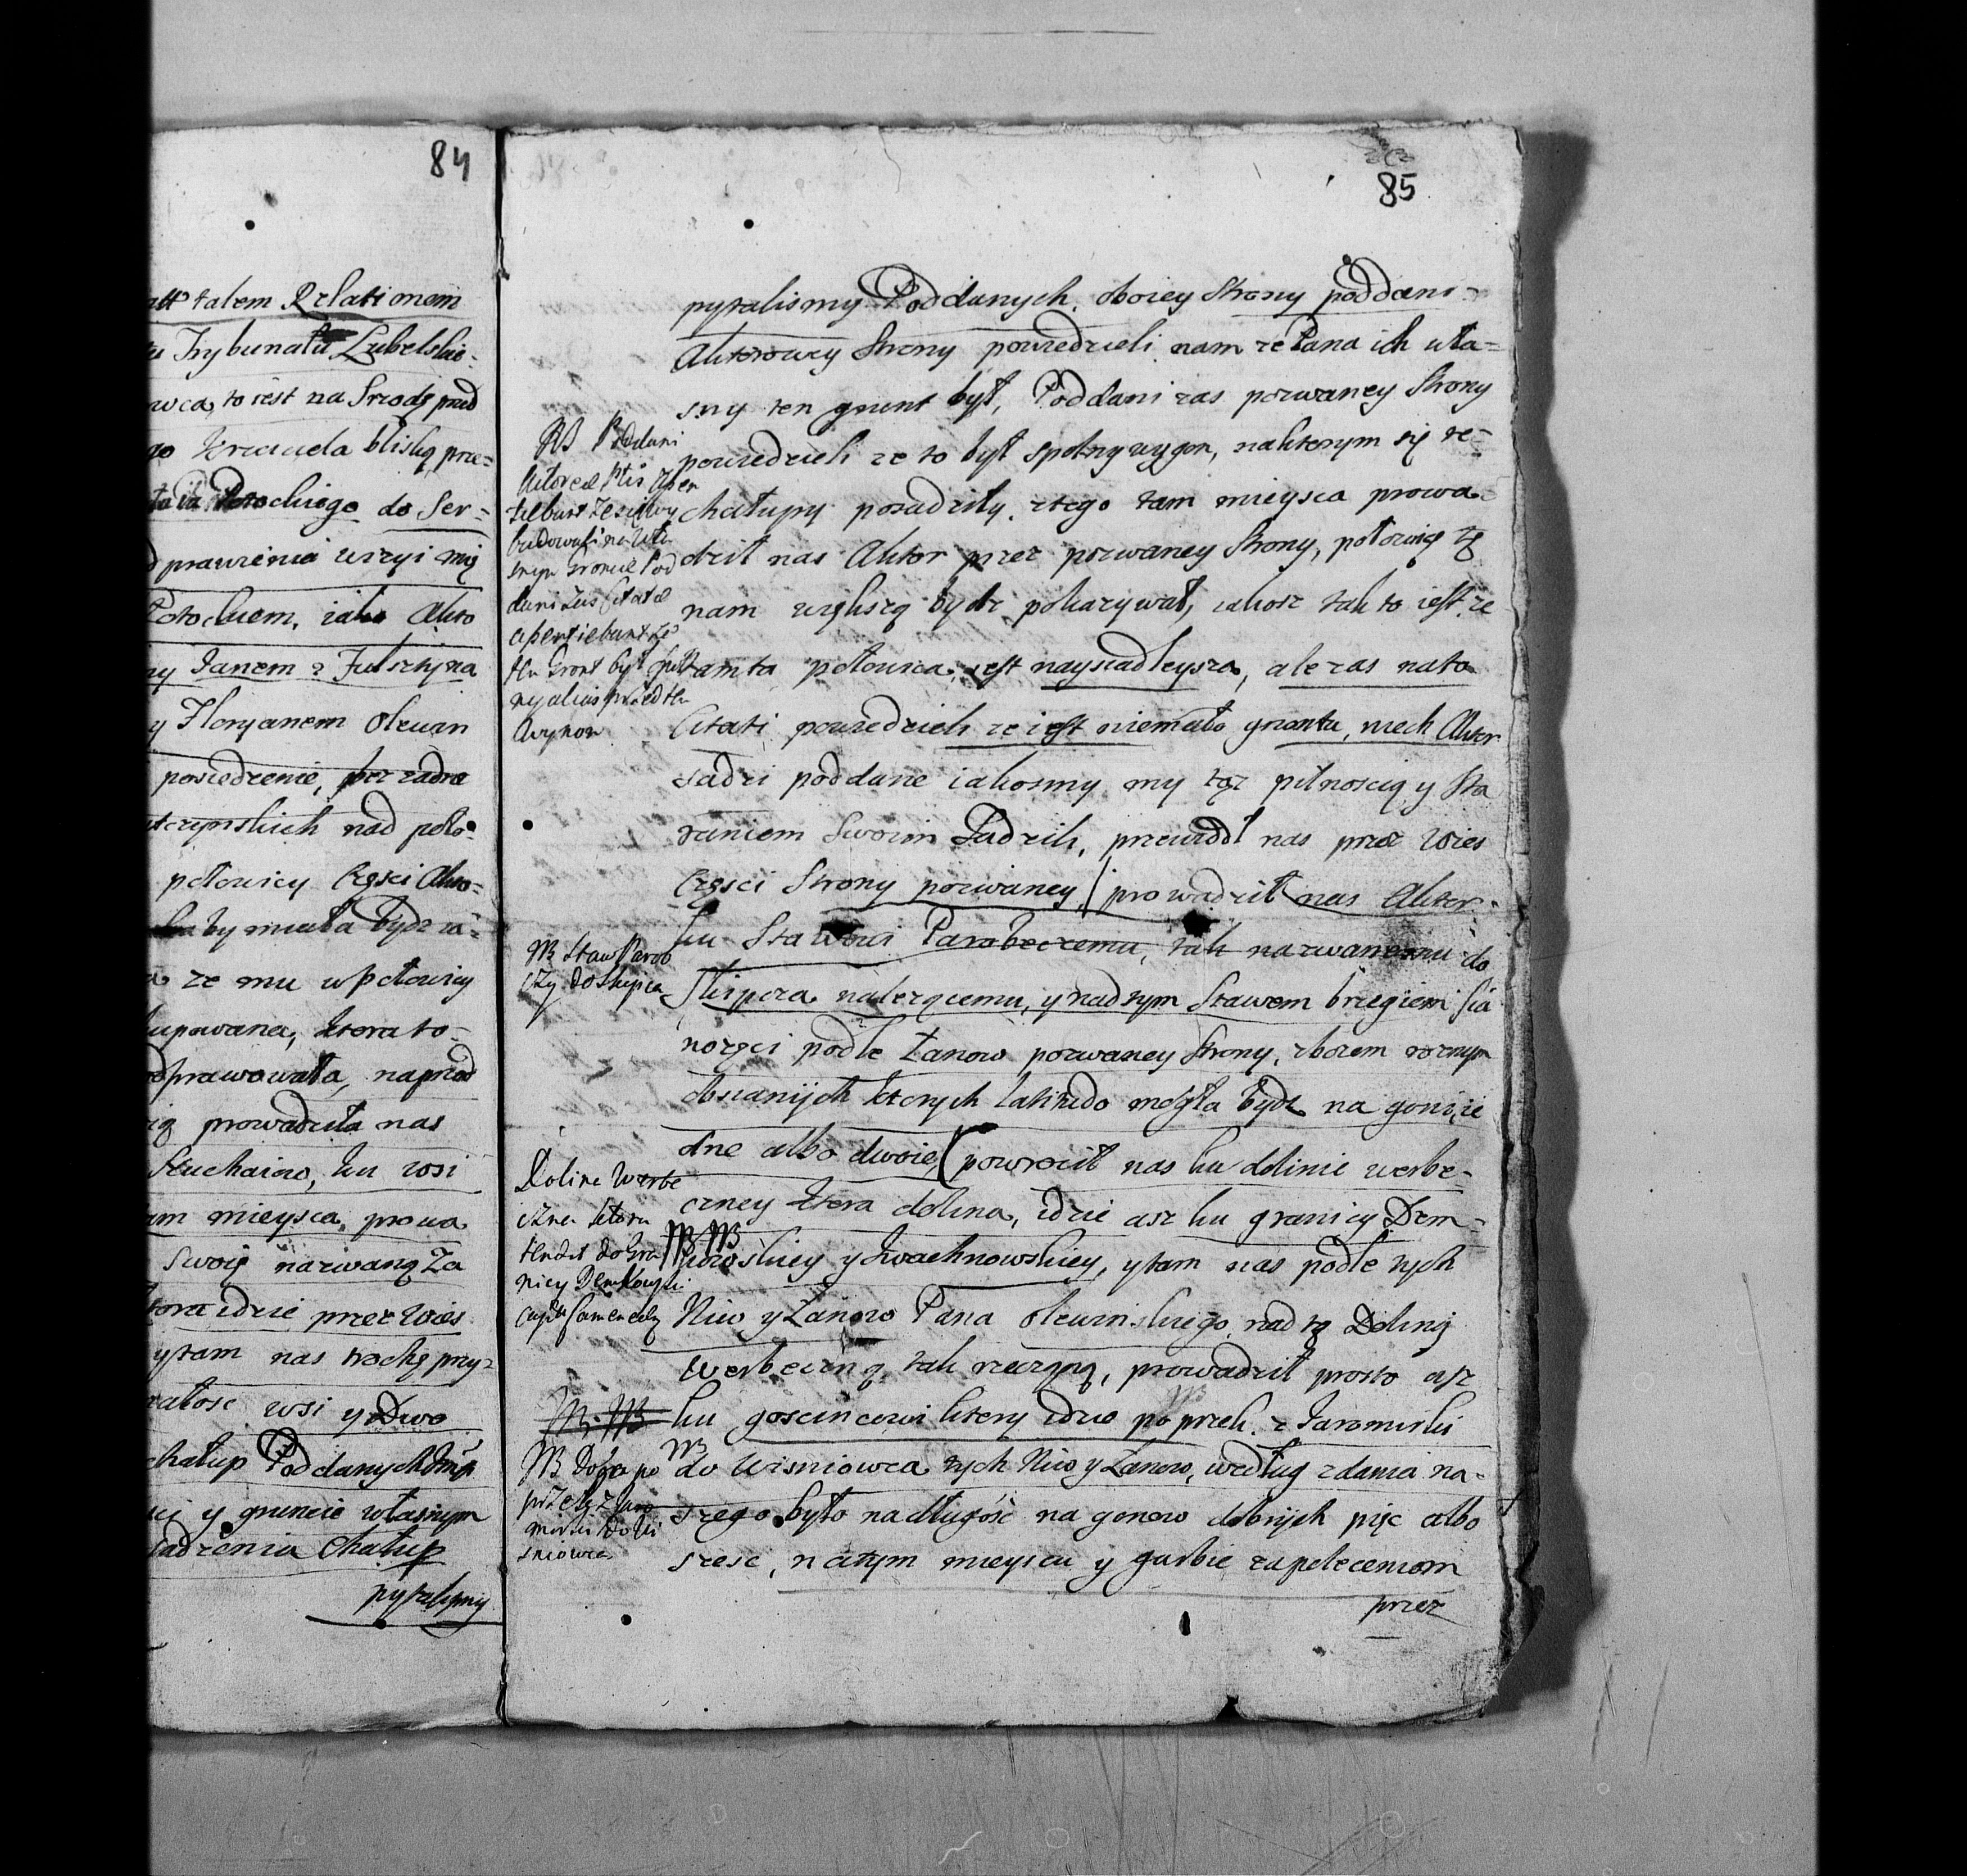 84
att talem Relationem
tu Trybunatu Lubelskie-
wca, to iest na Srzodę pred
do Ser-
prawienia wizyi mię
Potockiem, iako Akto
ny Janem z Fulsztyna
y Floryanem Olewin
posiedzenie, przez zadne
nad poło-
połowicy Części Akto-
by miała bydz za-
a ze mu w połowicy
kupowanea, ktora to-
odprawowała, naprzod
ią prowadziła nas
ku wsi
am mieysca, prowa
Swoię nazwaną Za
ktora idzie przez Wies
y tam nas trochę przy-
wsi y Dwo
chałup Poddanych
y gruncie własnym
sadzenia Chałup
pytalismy
85
pytalismy Poddanych oboiey Strony poddani-
Aktorowey Strony powiedzieli nam ze Pana ich wła-
sny ten grunt był, Poddani zas pozwaney Strony
powiedzieli ze to był spolny wygon, naktorym się te-
chałupy posadziły. z tego tam mieysca prowa-
dził nas Aktor przez pozwaney Strony, połowicę tę
nam większą bydz pokazywał, iakosz tak to iest ze
tamta połowica, iest naysiadleysza, ale zas na to
Citati powiedzieli ze iest niemało gruntu, niech Aktor
sadzi poddane iakosmy my tąz pilnoscią y Sta
raniem Swoim Sadzili, przewiodł nas przez Wies
Części Strony pozwaney, prowadził nas Aktor
ku Stawowi Parobeczemu, tak nazwanemu do
Słupcza nalezącemu, y nad tym Stawem brzegiem sia
nozęci podle Łanow pozwaney Strony, zbozem roznym
obsianych ktorych Latitudo mogła bydz na gonie ie
dne albo dwoie, powrocił nas ku dolinie werbe-
czney ktora dolina, idzie asz ku granicy Dem-
kowskiey y Iwachnowskiey, y tam nas podle tych
Niw y Łanow Pana Olewinskiego nad tą Doliną
Werbeczną tak rzeczoną, prowadził prosto asz
ku goscincowi ktory idzie po przek z Jaromirki
do Wisniowca tych Niw y Łanow, według zdania na-
szego było nadługość na gonow dobrych pięc albo
szesc, natym mieyscu y garbie zapoleceniom
przez
NB Poddani
Actoreæ Ptis Aper
tiebant ze się my
budowali na Wła
snym Groncie Pod
dani zas Citatæ
apertiebant ze
ten Gront był
ny alias przedtem
Wygon
NB Staw Parob
czy do Słupca
Dolina Werbe
czna ktora
tendit do Gra
nicy Demkowski
NB NB
NB NB
NB Droga po
przek z Jaro
mirki do Wi
sniowca